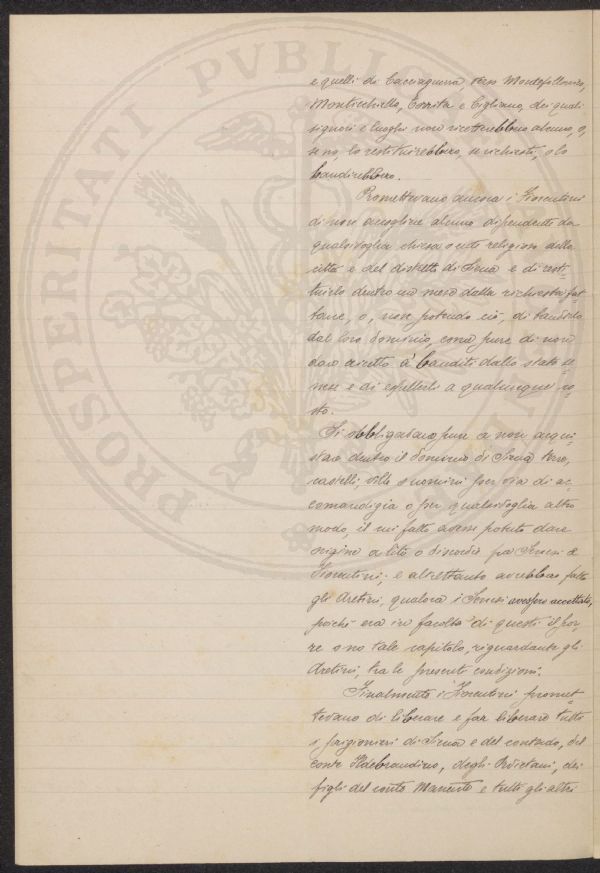 PROSPERITATI PVBLICAE
e quelli di Cacciaguerra, verso Montefollonico,
Monticchiello, Corsita e Cigliano, dei quali
signori e luoghi non ricetterebbono alcuno, o,
se no, lo restituirebbero, se richiesti, o lo
bandirebbero.
Promettevano ancora i Fiorentini
di non accogliere alcuno dipendente da
qualsivoglia chiesa o ente religioso della
città e del distretto di Siena e di resti-
tuirlo dentro un mese dalla richiesta fat-
tane, o, non potendo ciò, di bandirlo
dal loro dominio, come pure di non
dare ricetto a' banditi dallo stato se-
nese e di espellerli a qualunque co-
sto.
Si obbligavano pure a non acqui-
stare dentro il dominio di Siena terre,
castelli, ville o uomini per via di ac-
comandigia o per qualsivoglia altro
modo, il cui fatto avesse potuto dare
origine a lite o discordia fra Senesi e
Fiorentini; e altrettanto avrebbero fatto
gli Aretini, qualora i Senesi avessero accettato,
poichè era in facoltà di questi il por-
re o no tale capitolo, riguardante gli
Aretini, tra le presenti condizioni.
Finalmente i Fiorentini promet-
tevano di liberare e far liberare tutti
i prigionieri di Siena e del contado, del
conte Ildebrandino, degli Orvietani, dei
figli del conte Manente e tutti gli altri